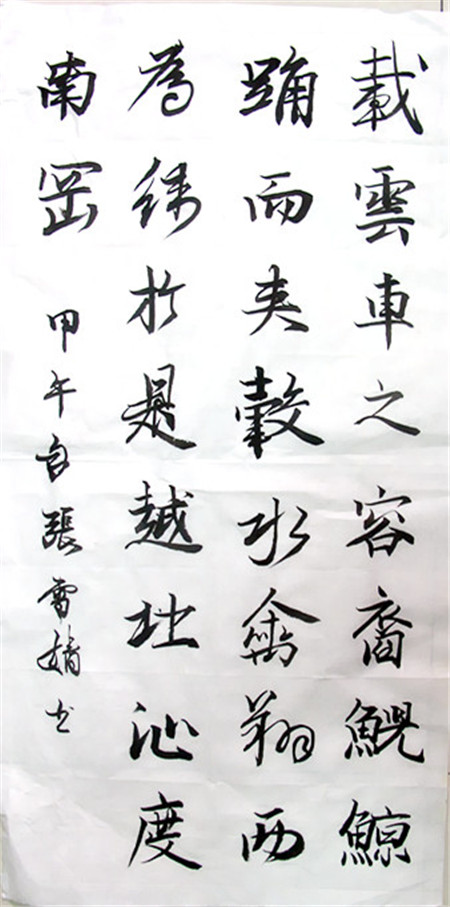 載雲車之容裔鯢鯨
踊而夾轂水禽翔而
為衛於是越北沚度
南岡 甲午張雪書